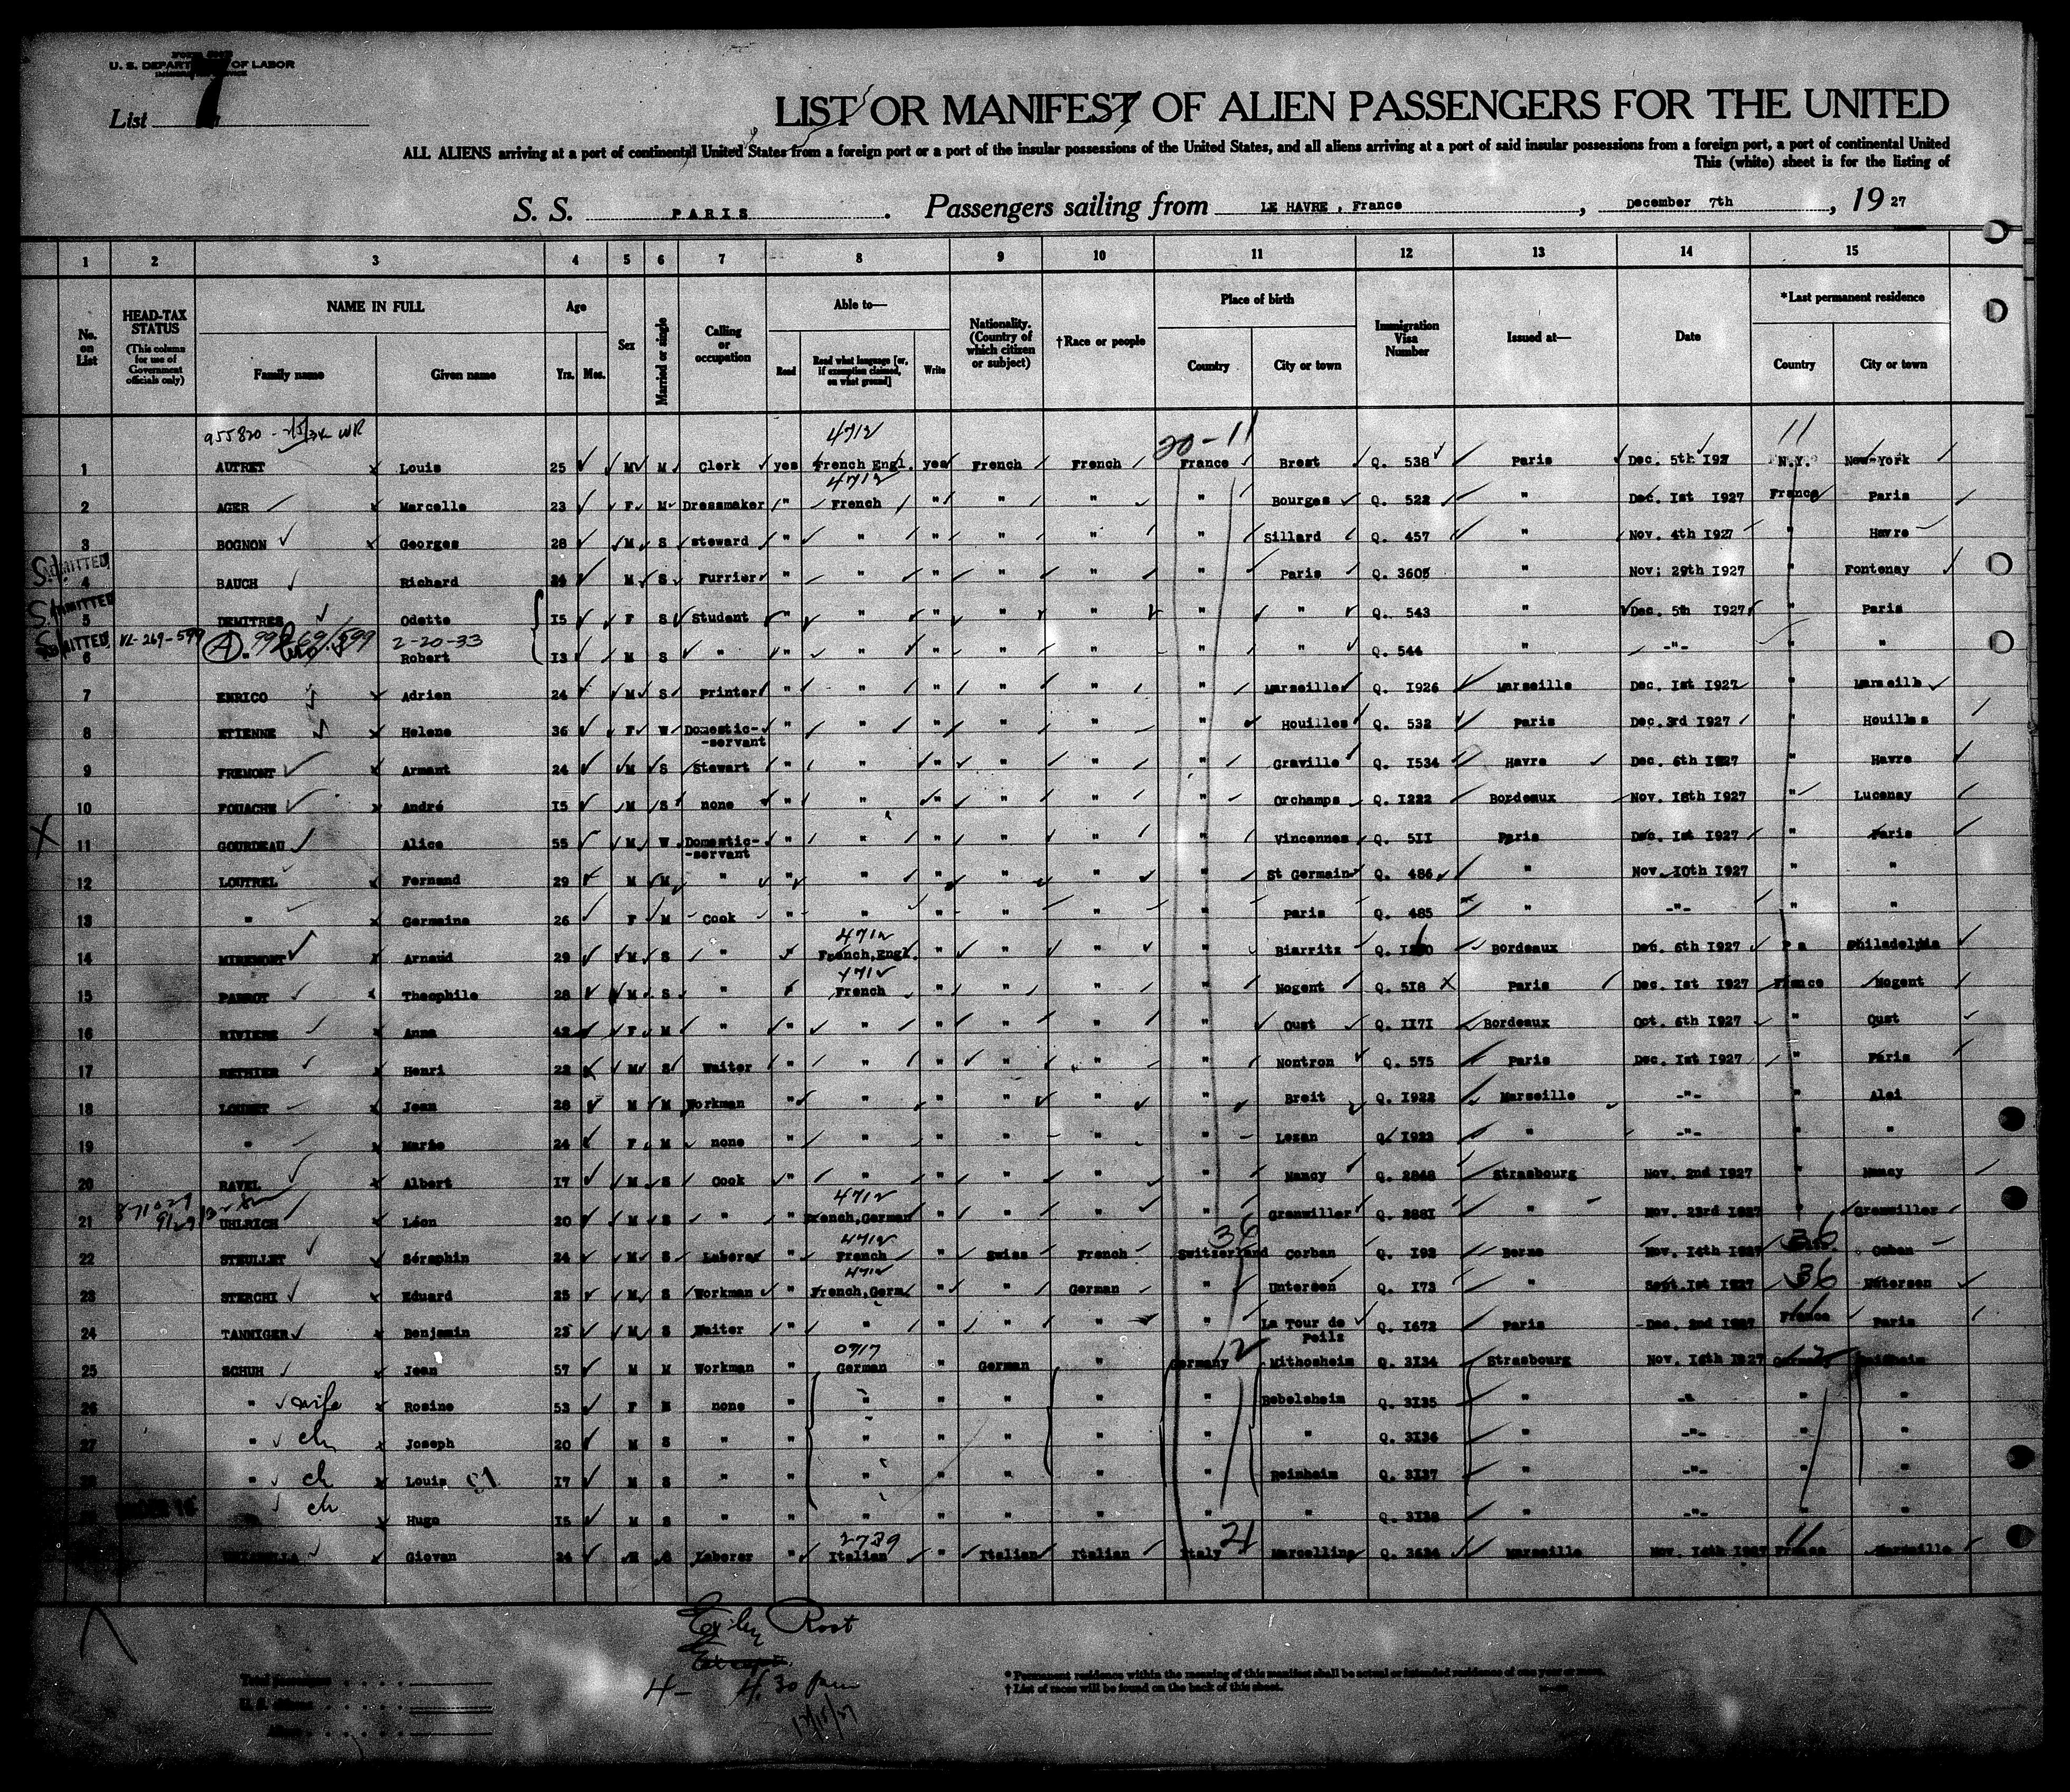 U. S. DEPARTMENT OF LABOR
List 7
LIST OR MANIFEST OF ALIEN PASSENGERS FOR THE UNITED
ALL ALIENS arriving at a port of continental United States from a foreign port or a port of the insular possessions of the United States, and all aliens arriving at a port of said insular possessions from a foreign port, a port of continental United
This (white) sheet is for the listing of
S. S. PARIS. Passengers sailing from LE HAVRE, France, December 7th, 1927
1 2 3 4 5 6 7 8 9 10 11 12 13 14 15
No. on List
HEAD-TAX STATUS (This column for use of Government officials only)
NAME IN FULL Family name Given name
Age Yrs. Mos.
Sex
Married or single
Calling or occupation
Able to— Read Read what language [or, if exemption claimed, on what ground] Write
Nationality. (Country of which citizen or subject)
†Race or people
Place of birth Country City or town
Immigration Visa Number
Issued at—
Date
*Last permanent residence Country City or town
4712 20-11 11
1 AUTRET Louis 25 M M Clerk yes French Engl. yes French French France Brest Q. 538 Paris Dec. 5th 192 N.Y. New-York
4712
2 AGER Marcelle 23 F M Dressmaker " French " " " " Bourges Q. 522 " Dec. Ist I927 France Paris
3 BOGNON Georges 28 M S steward " " " " " " Sillard Q. 457 " Nov. 4th I927 " Havre
4 BAUCH Richard M S Furrier " " " " " " Paris Q. 3605 " Nov; 29th I927 " Fontenay
5 DEMITRES Odette I5 F S Student " " " " " " " Q. 543 " Dec. 5th I927 " Paris
ADMITTED 2-20-33
6 Robert I3 M S " " " " " " " " Q. 544 " -"- " "
7 ENRICO Adrien 24 M S Printer " " " " " " Marseille Q. I926 Marseille Dec. Ist I927 " Marseille
8 ETIENNE Helene 36 F W Domestic--servant " " " " " " Houilles Q. 532 Paris Dec. 3rd I927 " Houilles
9 FREMONT Armant 24 M S Stewart " " " " " " Graville Q. I534 Havre Dec. 6th I927 " Havre
10 FOUACHE André I5 M S none " " " " " " Orchamps Q. I222 Bordeaux Nov. I8th I927 " Lucenay
11 GOURDEAU Alice 55 M W Domestic--servant " " " " " " Vincennes Q. 5II Paris Dec. Ist I927 " Paris
12 LOUTREL Fernand 29 M M " " " " " " " St Germain Q. 486 " Nov. I0th I927 " "
13 " Germaine 26 F M Cook " " " " " " Paris Q. 485 " -"- " "
4712
14 MIREMONT Arnaud 29 M S " French,Engl. " " " " Biarritz Bordeaux Dec. 6th I927 Pa Philadelphia
4712
15 PARROT Theophile 28 M S " French " " " " Nogent Q. 5I8 Paris Dec. Ist I927 France Nogent
16 RIVIERE Anna 42 F M " " " " " " " Oust Q. II7I Bordeaux Oct. 6th I927 " Oust
17 RETHIER Henri 22 M S Waiter " " " " " " Nontron Q. 575 Paris Dec. Ist I927 " Paris
18 LOUBET Jean 28 M M Workman " " " " " " Breit Q. I922 Marseille -"- " Alei
19 " Marie 24 F M none " " " " " " Lezan Q. I923 " -"- " "
20 RAVEL Albert I7 M S Cook " " " " " " Nancy Q. 2848 Strasbourg Nov. 2nd I927 " Nancy
4712
21 UHLRICH Léon 20 M S " " French,German " " " Grenwiller Q. 288I " Nov. 23rd I927 " Grenwiller
4712 36 36
22 STEULLET Séraphin 24 M S Laborer " French " Swiss French Switzerland Corban Q. I92 Berne Nov. I4th I927 Coban
4712 36
23 STERCHI Eduard 25 M S Workman " French,Germ. " " German " Untersen Q. I73 " Sept.Ist I927 Untersen
24 TANNIGER Benjamin 23 M S Waiter " " " " " " La Tour de Peilz Q. I672 Paris Dec. 2nd I927 France Paris
0717 12
25 SCHUH Jean 57 M M Workman " German " German " Germany Mithosheim Q. 3I34 Strasbourg Nov. I6th I927 Germany
26 " wife Rosine 53 F M none " " " " " " Bebelsheim Q. 3I35 " -"- " "
27 " ch Joseph 20 M S " " " " " " " " Q. 3I36 " -"- " "
" ch Louis I7 M S " " " " " " " Reinheim Q. 3I37 " -"- " "
ch Hugo I5 M S " " " " " " " " Q. 3I38 " -"- " "
2789 21 11
Giovan 24 M S Laborer " Italian " Italian Italian Italy Marcelling Q. 3624 Marseille Nov. I6th I927 France Marseille
Root
4- 4.30 pm
Total passengers
U. S. citizens
Aliens
* Permanent residence within the meaning of this manifest shall be actual or intended residence of one year or more.
† List of races will be found on the back of this sheet.